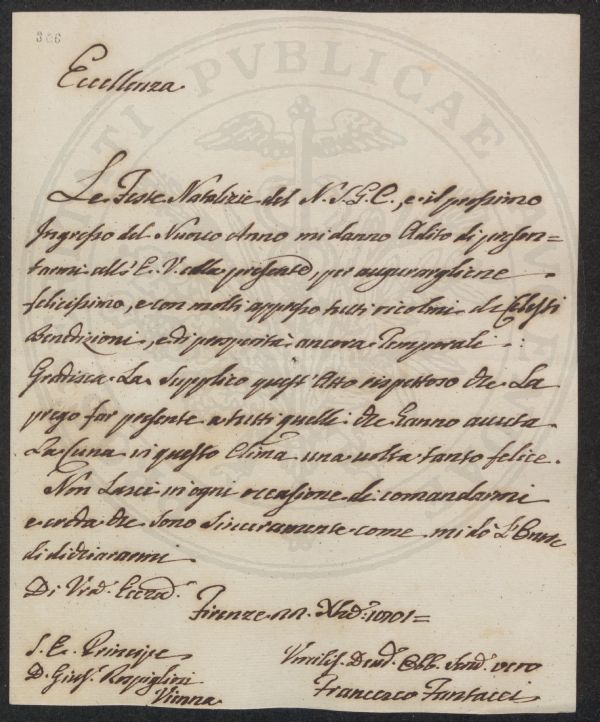 366
Eccellenza
Le Feste Natalizie del N. S. G. C., e il prossimo
Ingresso del Nuovo Anno mi danno Adito di presen=
tarmi all' E. V. alla presente, per augurargliene
felicissimo, e con molti appresso tutti ricolmi di Celesti
Benedizioni, e di prosperità ancora Temporali.
Gradisca La Supplico quest' Atto rispettoso che La
prego far presente a tutti quelli che hanno avuta
La Cuna in questo Clima una volta tanto felice.
Non Lasci in ogni occasione di comandarmi
e creda che sono sinceramente come mi dò L'Onore
di dichiararmi
Di Vrã. Eccza.
Firenze 22. Xbre.
S. E. Principe
D. Gius. Rospigliosi
Vienna
Umilis. Dev. Obb. Serv. vero
Francesco Fantacci